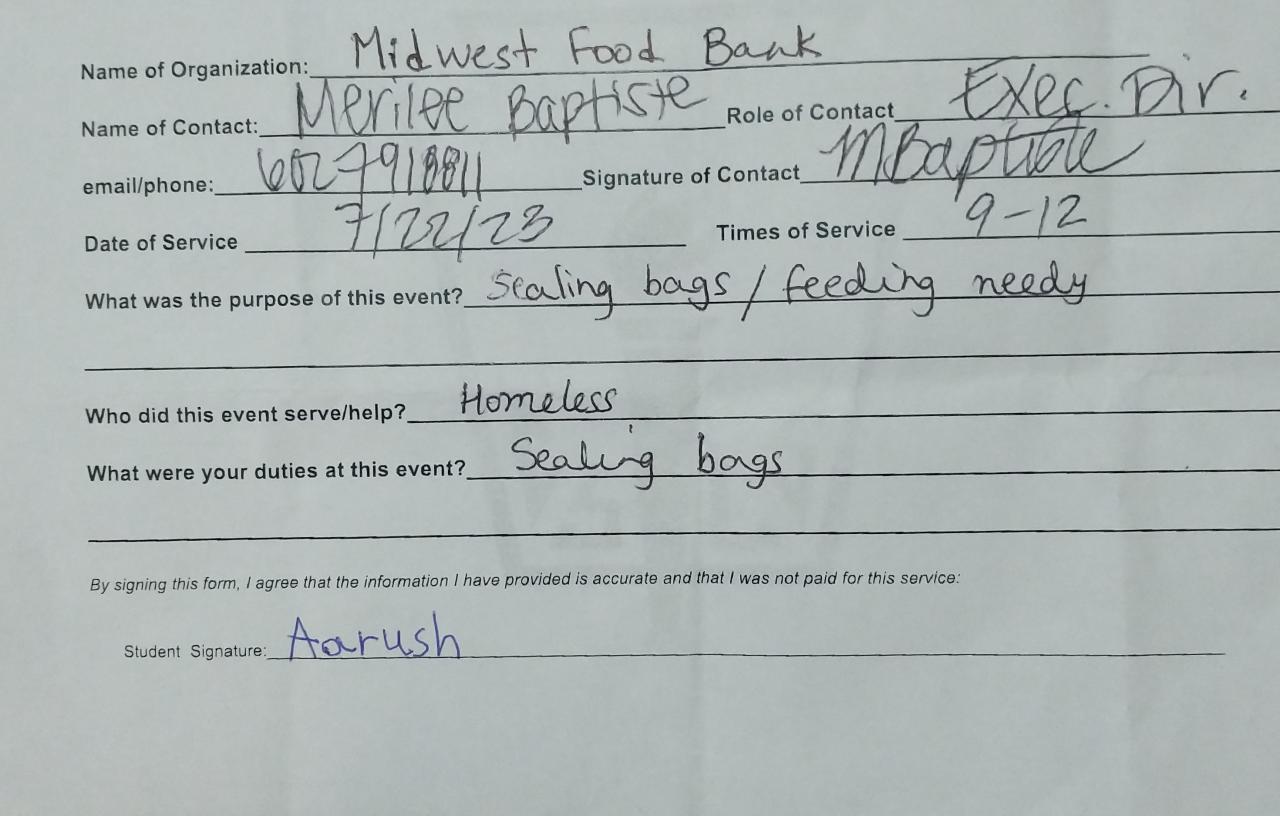 Name of Organization: Midwest Food Bank
Name of Contact: Merilee Baptiste Role of Contact Exec. Dir.
email/phone: 6027918811 Signature of Contact MBaptiste
Date of Service 7/22/23 Times of Service 9-12
What was the purpose of this event? Sealing bags / feeding needy
Who did this event serve/help? Homeless
What were your duties at this event? Sealing bags
By signing this form, I agree that the information I have provided is accurate and that I was not paid for this service:
Student Signature: Aarush